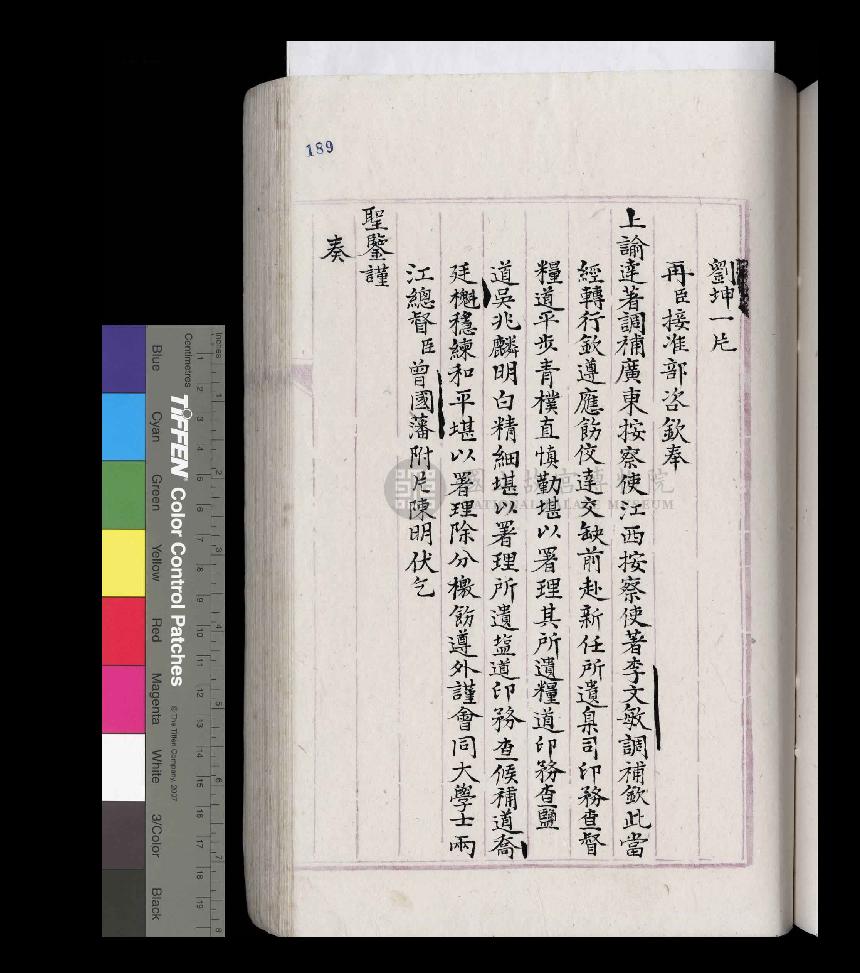 189
劉坤一片
再臣接准部咨欽奉
上諭達著調補廣東按察使江西按察使著李文敏調補欽此當
經轉行欽遵應飭佼達交缺前赴新任所遺臬司印務查督
糧道平步青樸直慎勤堪以署理其所遺糧道印務查鹽
道吳兆麟明白精細堪以署理所遺盐道印務查候補道喬
廷櫆穩練和平堪以署理除分檄飭遵外謹會同大學士兩
江總督臣曾國藩附片陳明伏乞
聖鑒謹
奏
國立故宮博物院
NATIONAL PALACE MUSEUM
Inches
Centimetres
TIFFEN Color Control Patches
© The Tiffen Company, 2007
Blue
Cyan
Green
Yellow
Red
Magenta
White
3/Color
Black
1 2 3 4 5 6 7 8
1 2 3 4 5 6 7 8 9 10 11 12 13 14 15 16 17 18 19